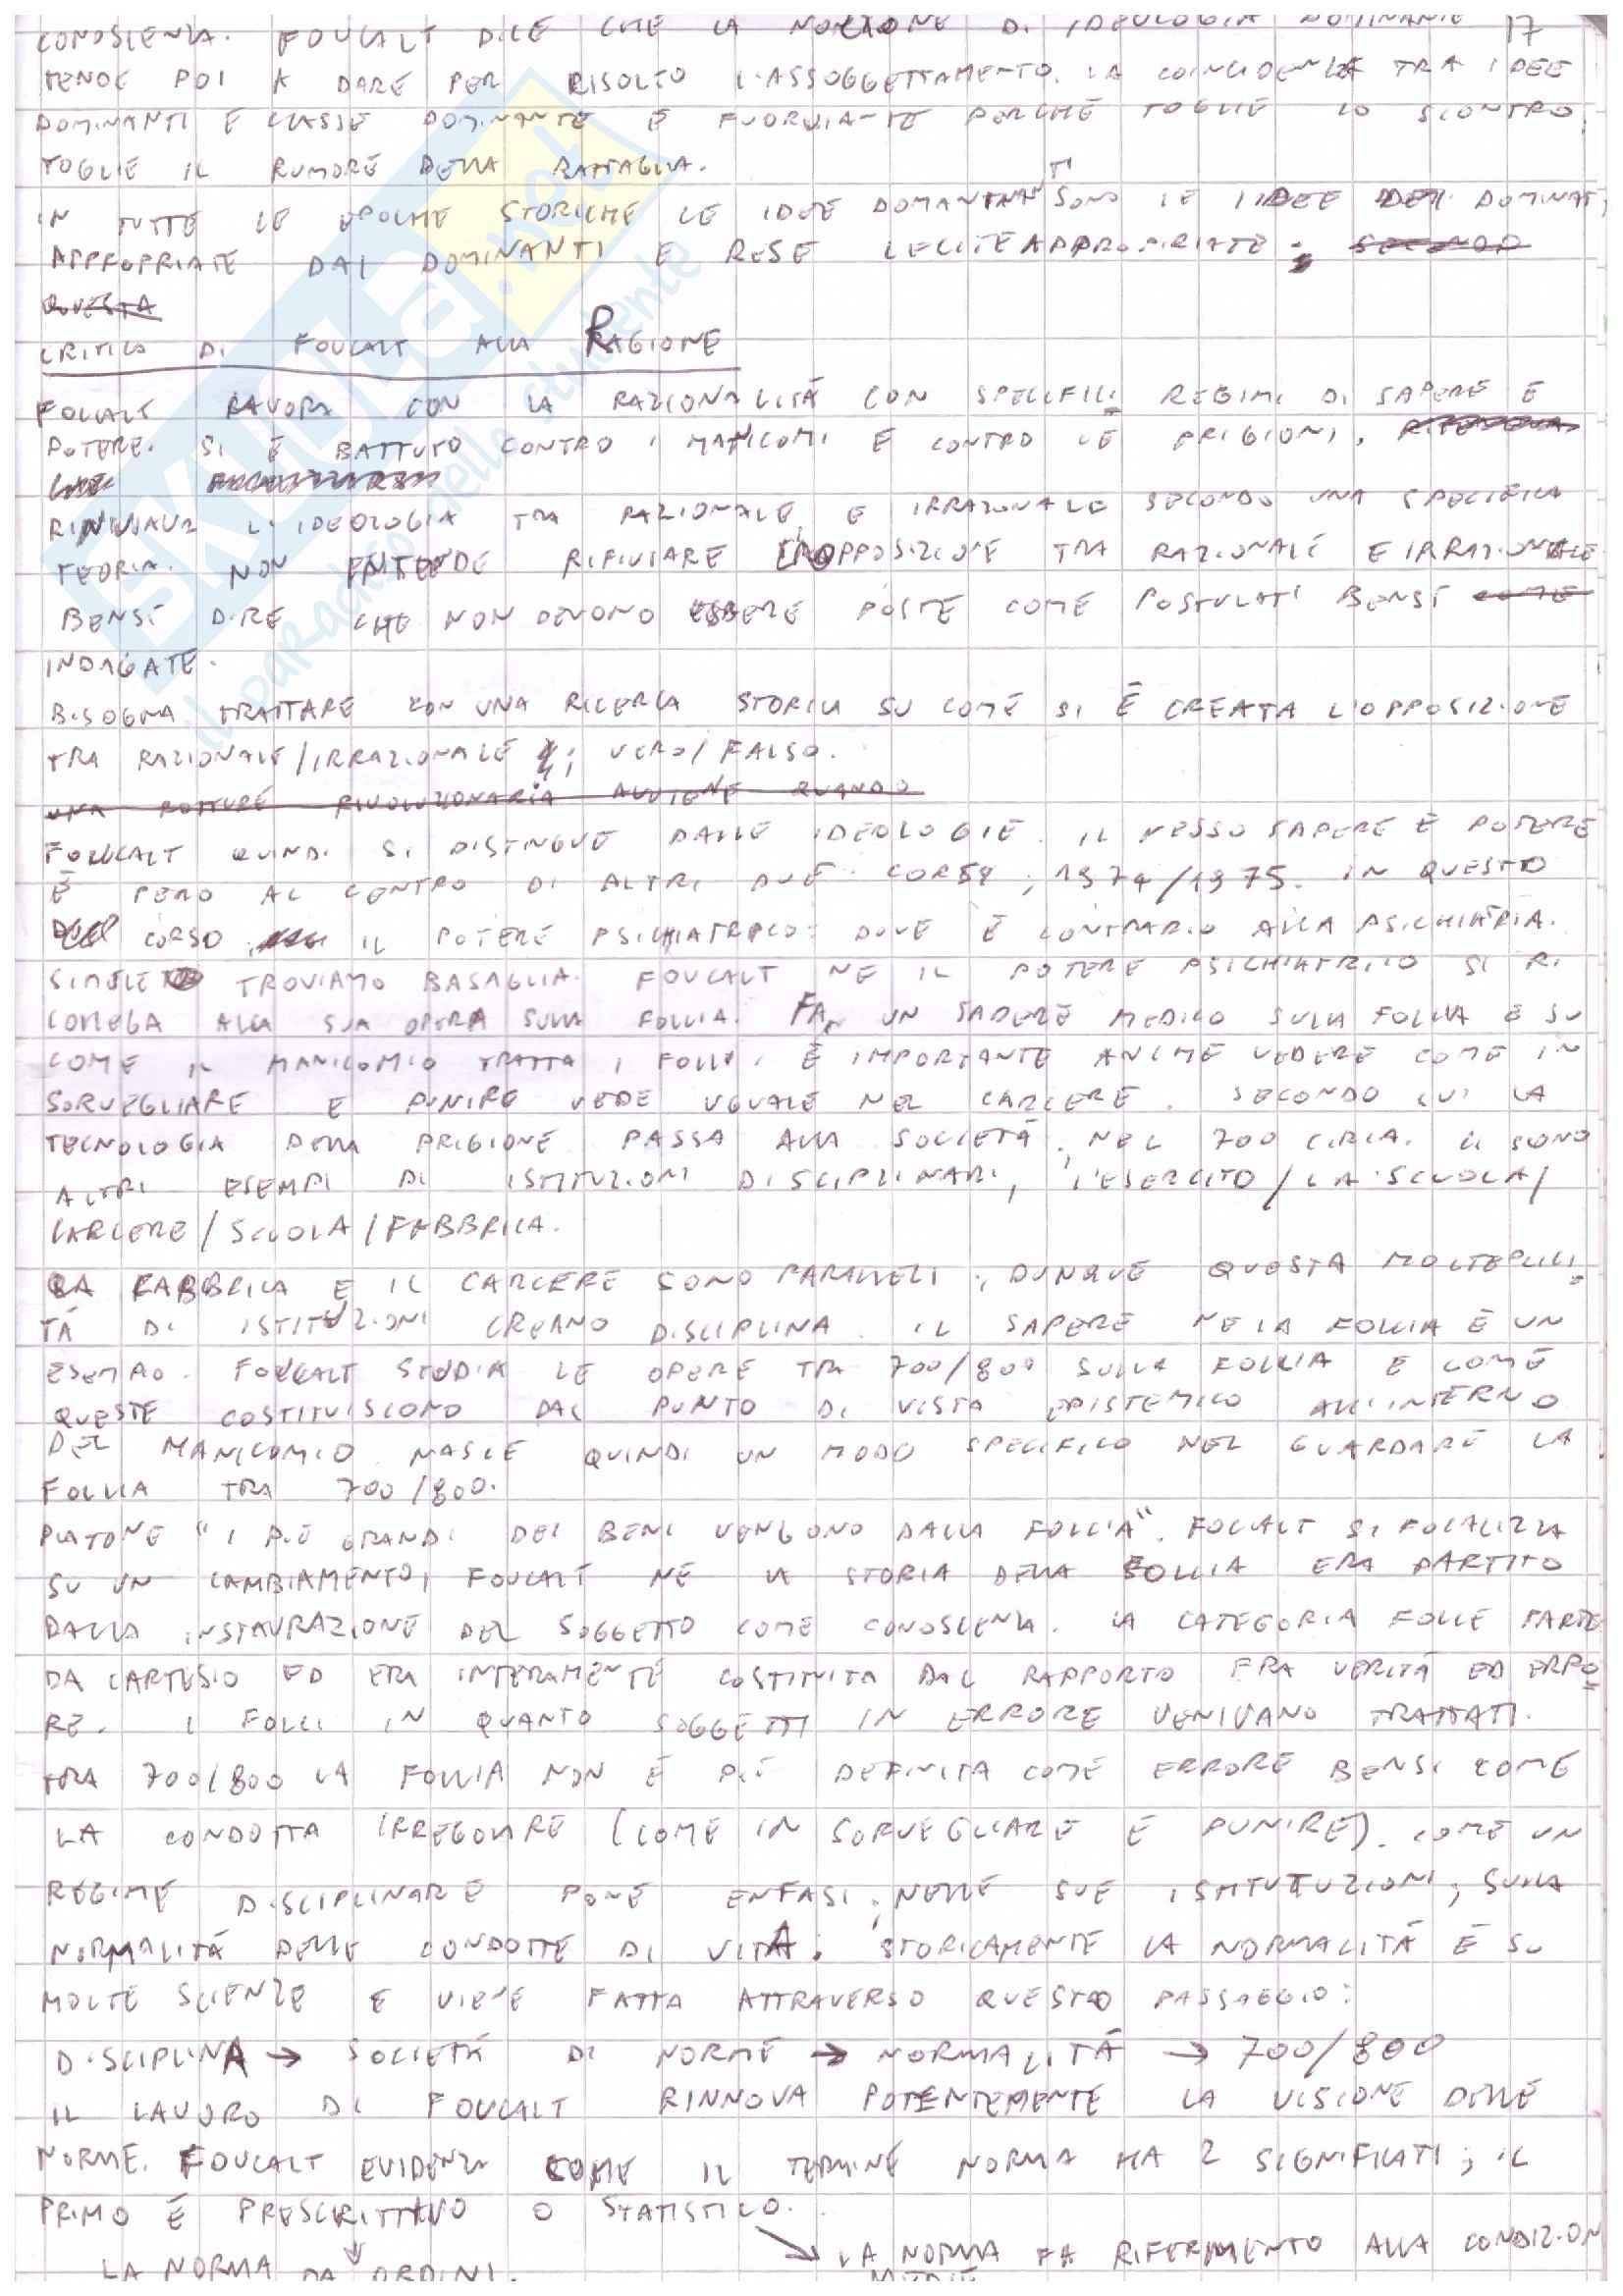 CONOSCENZA. FOUCALT DICE CHE LA NOZIONE DI IDEOLOGIA DOMINANTE 17
TENDE POI A DARE PER RISOLTO L'ASSOGGETTAMENTO. LA COINCIDENZA TRA IDEE
DOMINANTI E CLASSE DOMINANTE È FUORVIANTE PERCHÉ TOGLIE LO SCONTRO,
TOGLIE IL RUMORE DELLA BATTAGLIA.
IN TUTTE LE EPOCHE STORICHE LE IDEE DOMANTI SONO LE IDEE DEI DOMINATI,
APPROPRIATE DAI DOMINANTI E RESE LECITE APPROPRIATE. SECONDO
QUESTA
CRITICO DI FOUCALT ALLA RAGIONE
FOUCALT LAVORA CON LA RAZIONALITÀ CON SPECIFICI REGIMI DI SAPERE E
POTERE. SI È BATTUTO CONTRO I MANICOMI E CONTRO LE PRIGIONI.
L'IDEOLOGIA TRA RAZIONALE E IRRAZIONALE SECONDO UNA SPECIFICA
TEORIA. NON INTENDE RIFIUTARE L'OPPOSIZIONE TRA RAZIONALE E IRRAZIONALE
BENSÌ DIRE CHE NON DEVONO ESSERE POSTE COME POSTULATI BENSÌ COME
INDAGATE.
BISOGNA TRATTARE CON UNA RICERCA STORICA SU COME SI È CREATA L'OPPOSIZIONE
TRA RAZIONALE/IRRAZIONALE; VERO/FALSO.
UNA ROTTURE RIVOLUZIONARIA AVVIENE QUANDO
FOUCALT QUINDI SI DISTINGUE DALLE IDEOLOGIE. IL NESSO SAPERE E POTERE
È PERO AL CENTRO DI ALTRI DUE CORSI; 1974/1975. IN QUESTO
CORSO IL POTERE PSICHIATRICO: DOVE È CONTRARIO ALLA PSICHIATRIA.
SIMILE TROVIAMO BASAGLIA. FOUCALT NE IL POTERE PSICHIATRICO SI RI
COLLEGA ALLA SUA OPERA SULLA FOLLIA. FA UN SAPERE MEDICO SULLA FOLLIA E SU
COME IL MANICOMIO TRATTA I FOLLI. È IMPORTANTE ANCHE VEDERE COME IN
SORVEGLIARE E PUNIRE VEDE UGUALE NEL CARCERE. SECONDO LUI LA
TECNOLOGIA DELLA PRIGIONE PASSA ALLA SOCIETÀ, NEL 700 CIRCA. CI SONO
ALTRI ESEMPI DI ISTITUZIONI DISCIPLINARI, L'ESERCITO/LA SCUOLA/
CARCERE/SCUOLA/FABBRICA.
LA FABBRICA E IL CARCERE SONO PARALLELI; DUNQUE QUESTA MOLTEPLICI
TÀ DI ISTITUZIONI CREANO DISCIPLINA. IL SAPERE NELLA FOLLIA È UN
ESEMPIO. FOUCALT STUDIA LE OPERE TRA 700/800 SULLA FOLLIA E COME
QUESTE COSTITUISCONO DAL PUNTO DI VISTA EPISTEMICO ALL'INTERNO
DEL MANICOMIO. NASCE QUINDI UN MODO SPECIFICO NEL GUARDARE LA
FOLLIA TRA 700/800.
PLATONE "I PIÙ GRANDI DEI BENI VENGONO DALLA FOLLIA". FOUCALT SI FOCALIZZA
SU UN CAMBIAMENTO, FOUCALT NE LA STORIA DELLA FOLLIA ERA PARTITO
DALLA INSTAURAZIONE DEL SOGGETTO COME CONOSCENZA. LA CATEGORIA FOLLE PARTE
DA CARTESIO ED ERA INTERAMENTE COSTITUITA DAL RAPPORTO FRA VERITÀ ED ERRO
RE. I FOLLI IN QUANTO SOGGETTI IN ERRORE VENIVANO TRATTATI.
TRA 700/800 LA FOLLIA NON È PIÙ DEFINITA COME ERRORE BENSI COME
LA CONDOTTA IRREGOLARE (COME IN SORVEGLIARE E PUNIRE). COME UN
REGIME DISCIPLINARE PONE ENFASI, NELLE SUE ISTITUTUZIONI, SULLA
NORMALITÀ DELLE CONDOTTE DI VITA. STORICAMENTE LA NORMALITÀ È SU
MOLTE SCIENZE E VIENE FATTA ATTRAVERSO QUESTO PASSAGGIO:
DISCIPLINA → SOCIETÀ DI NORME → NORMALITÀ → 700/800
IL LAVORO DI FOUCALT RINNOVA POTENTEMENTE LA VISIONE DELLE
NORME. FOUCALT EVIDENZIA COME IL TERMINE NORMA HA 2 SIGNIFICATI; IL
PRIMO È PRESCRITTIVO O STATISTICO.
LA NORMA DA ORDINI. LA NORMA FA RIFERIMENTO ALLA CONDIZION
MEDIE
SKUOLA.net
il paradiso dello studente